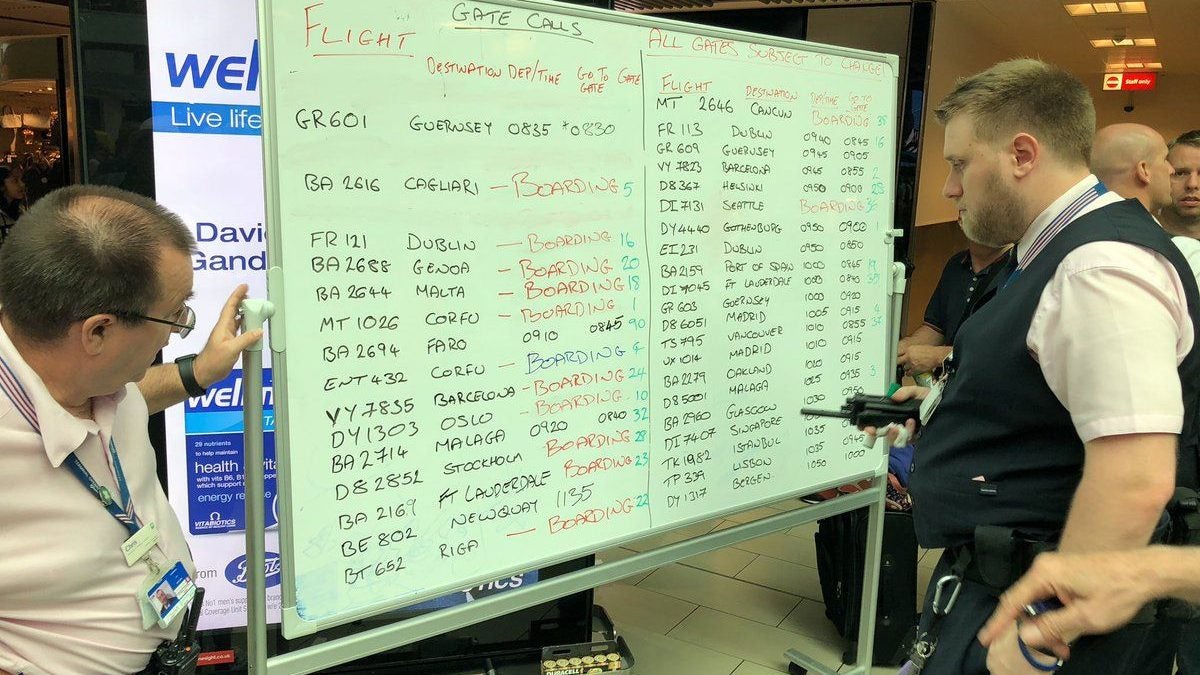 GATE CALLS
FLIGHT
DESTINATION DEP/TIME GO TO GATE GATE
GR601 GUERNSEY 0835 *0830
BA 2616 CAGLIARI — BOARDING 5
FR 121 DUBLIN — BOARDING 16
BA 2688 GENOA — BOARDING 20
BA 2644 MALTA — BOARDING 18
MT 1026 CORFU — BOARDING 1
BA 2694 FARO 0910 0845 90
ENT 432 CORFU — BOARDING 4
VY 7835 BARCELONA — BOARDING 24
DY1303 OSLO — BOARDING 10
BA 2714 MALAGA 0920 0840 32
D8 2852 STOCKHOLM BOARDING 28
BA 2169 FT LAUDERDALE BOARDING 23
BE 802 NEWQUAY 1135
BT 652 RIGA — BOARDING 22
ALL GATES SUBJECT TO CHANGE!
FLIGHT DESTINATION DEP/TIME GO TO GATE
MT 2646 CANCUN BOARDING 38
FR 113 DUBLIN 0940 0845 16
GR 609 GUERNSEY 0945 0905
VY 7823 BARCELONA 0945 0855 2
D8 367 HELSINKI 0950 0900
DI 7131 SEATTLE BOARDING
DY 4440 GOTHENBURG 0950 0900 1
EI 231 DUBLIN 0950 0850
BA 2159 PORT OF SPAIN 1000 0845 19
DI 7045 FT LAUDERDALE 1000 0845 35
GR 603 GUERNSEY 1000 0920
D8 6051 MADRID 1005 0915 4
TS 795 VANCOUVER 1010 0855 37
UX 1014 MADRID 1010 0915
BA 2279 OAKLAND 1020 0915
D8 5001 MALAGA 1025 0935 3
BA 2960 GLASGOW 1030 0950
DI 7407 SINGAPORE 1035
TK 1982 ISTANBUL 1035 0945
TP 339 LISBON 1050 1000
DY 1317 BERGEN.
Live life
Davi
Gand
29 nutrients
to help maintain
health & vita
with vits B6, B1
which support
energy rele
VITABIOTICS
from Boots
Staff only
Chris
DURACELL